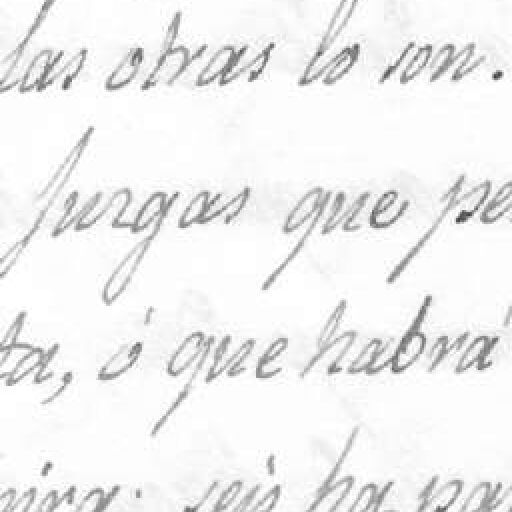 las otras lo son.
Jurgas que pe
ta, ó que habrá
mira; seis ha pa